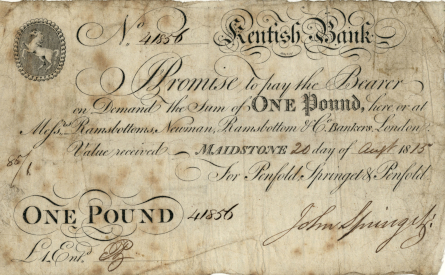 No. 41856 Kentish Bank
I Promise to pay the Bearer
on Demand the Sum of ONE Pound, here or at
Messrs. Ramsbottoms, Newman, Ramsbottom & Co. Bankers London
Value received — MAIDSTONE 20 day of Augt. 1815
For Penfold, Springet & Penfold
ONE POUND 41856
John Springet
£1, Entd.